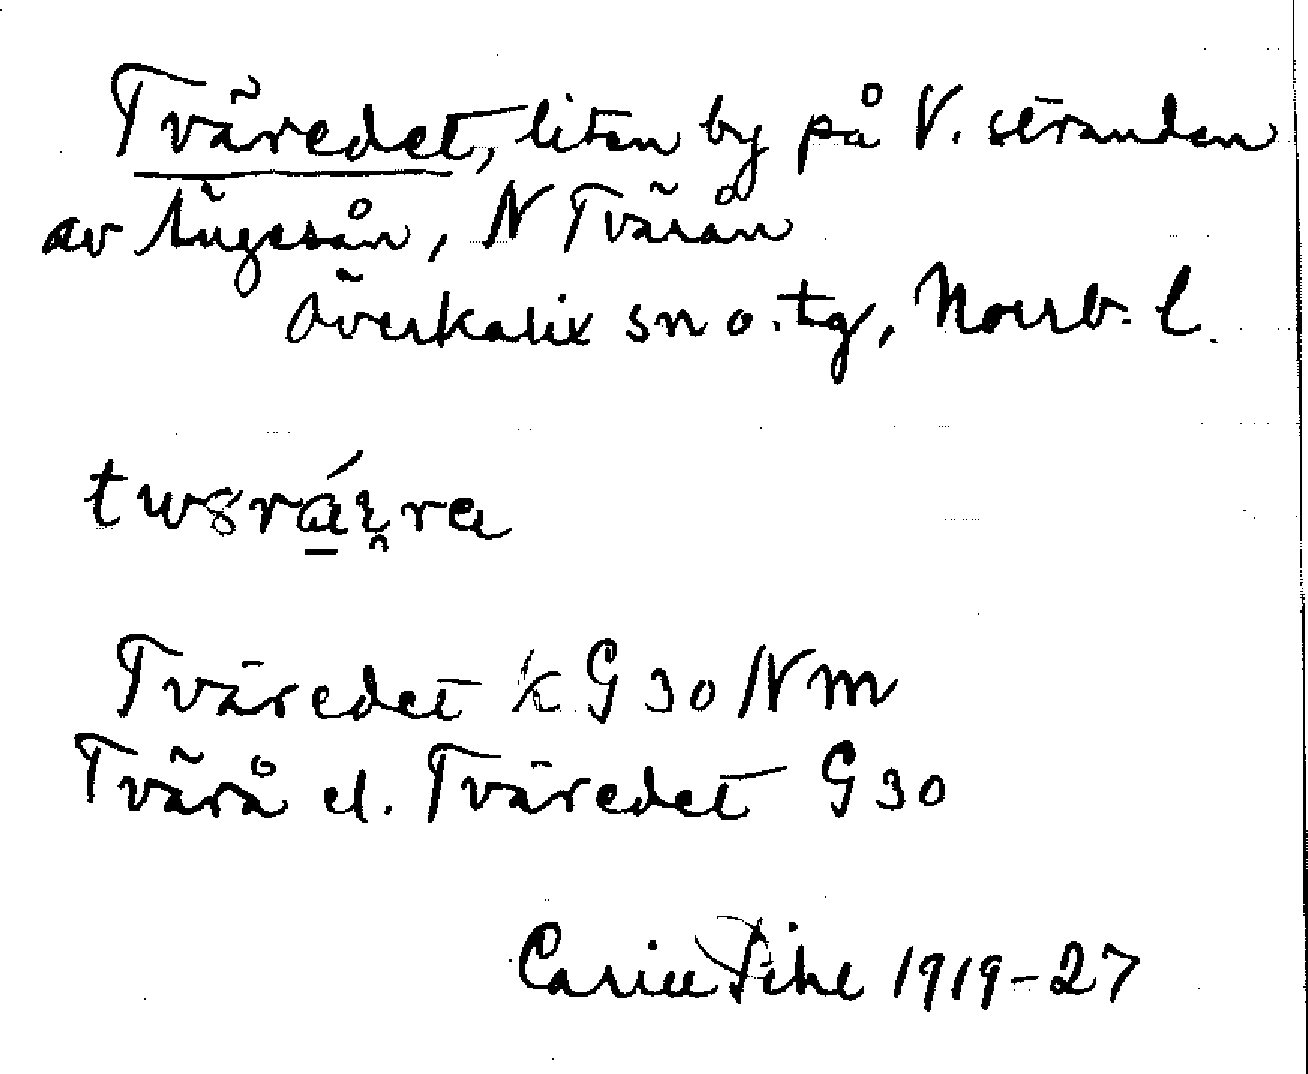 Tväredet, liten by på V. stranden
av Ängesån, N Tvärån
Överkalix sn o. tg, Norrb. l.
Tväredet k G 30 NM
Tvärå el. Tväredet G 30
Carin Pihl 1919-27